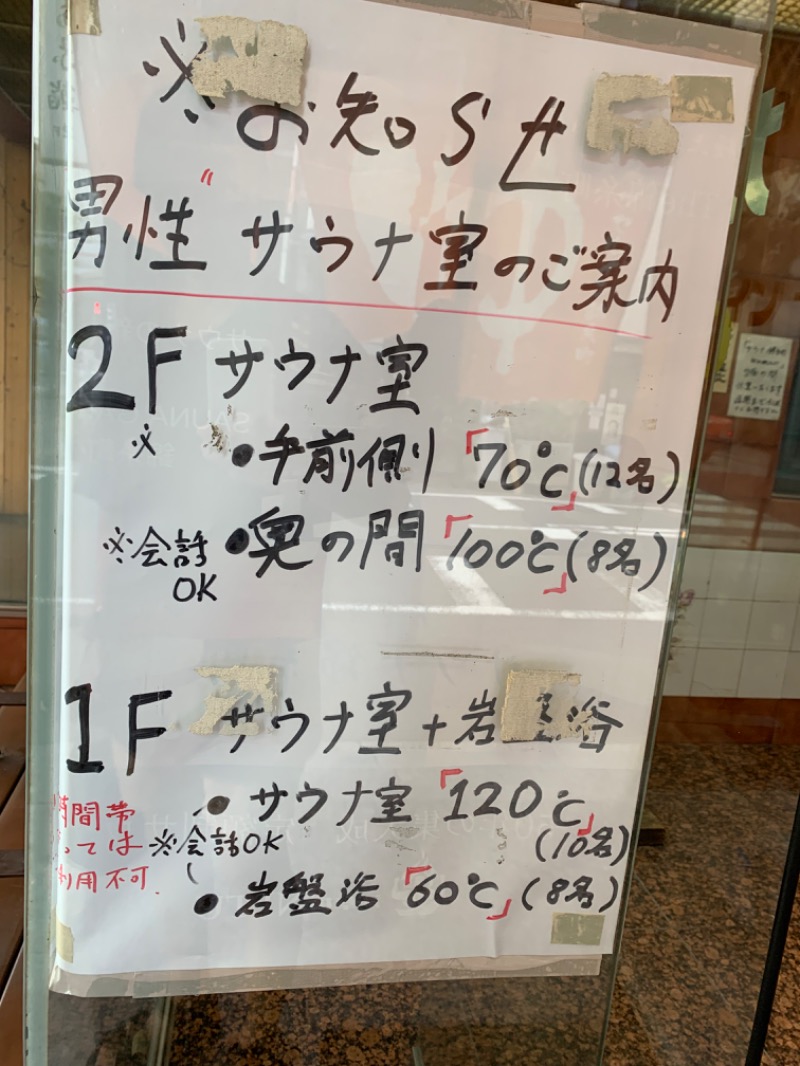 ※お知らせ
男性 サウナ室のご案内
2F サウナ室
※
・手前側り「70℃」(12名)
※会話OK
・奥の間「100℃」(8名)
1F サウナ室+岩盤浴
・サウナ室「120℃」(10名)
※会話OK
・岩盤浴「60℃」(8名)
時間帯
っては
利用不可.